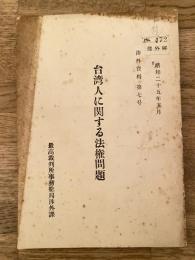 昭和二十五年五月
渉外資料第七号
台湾人に関する法権問題
最高裁判所事務総局渉外課